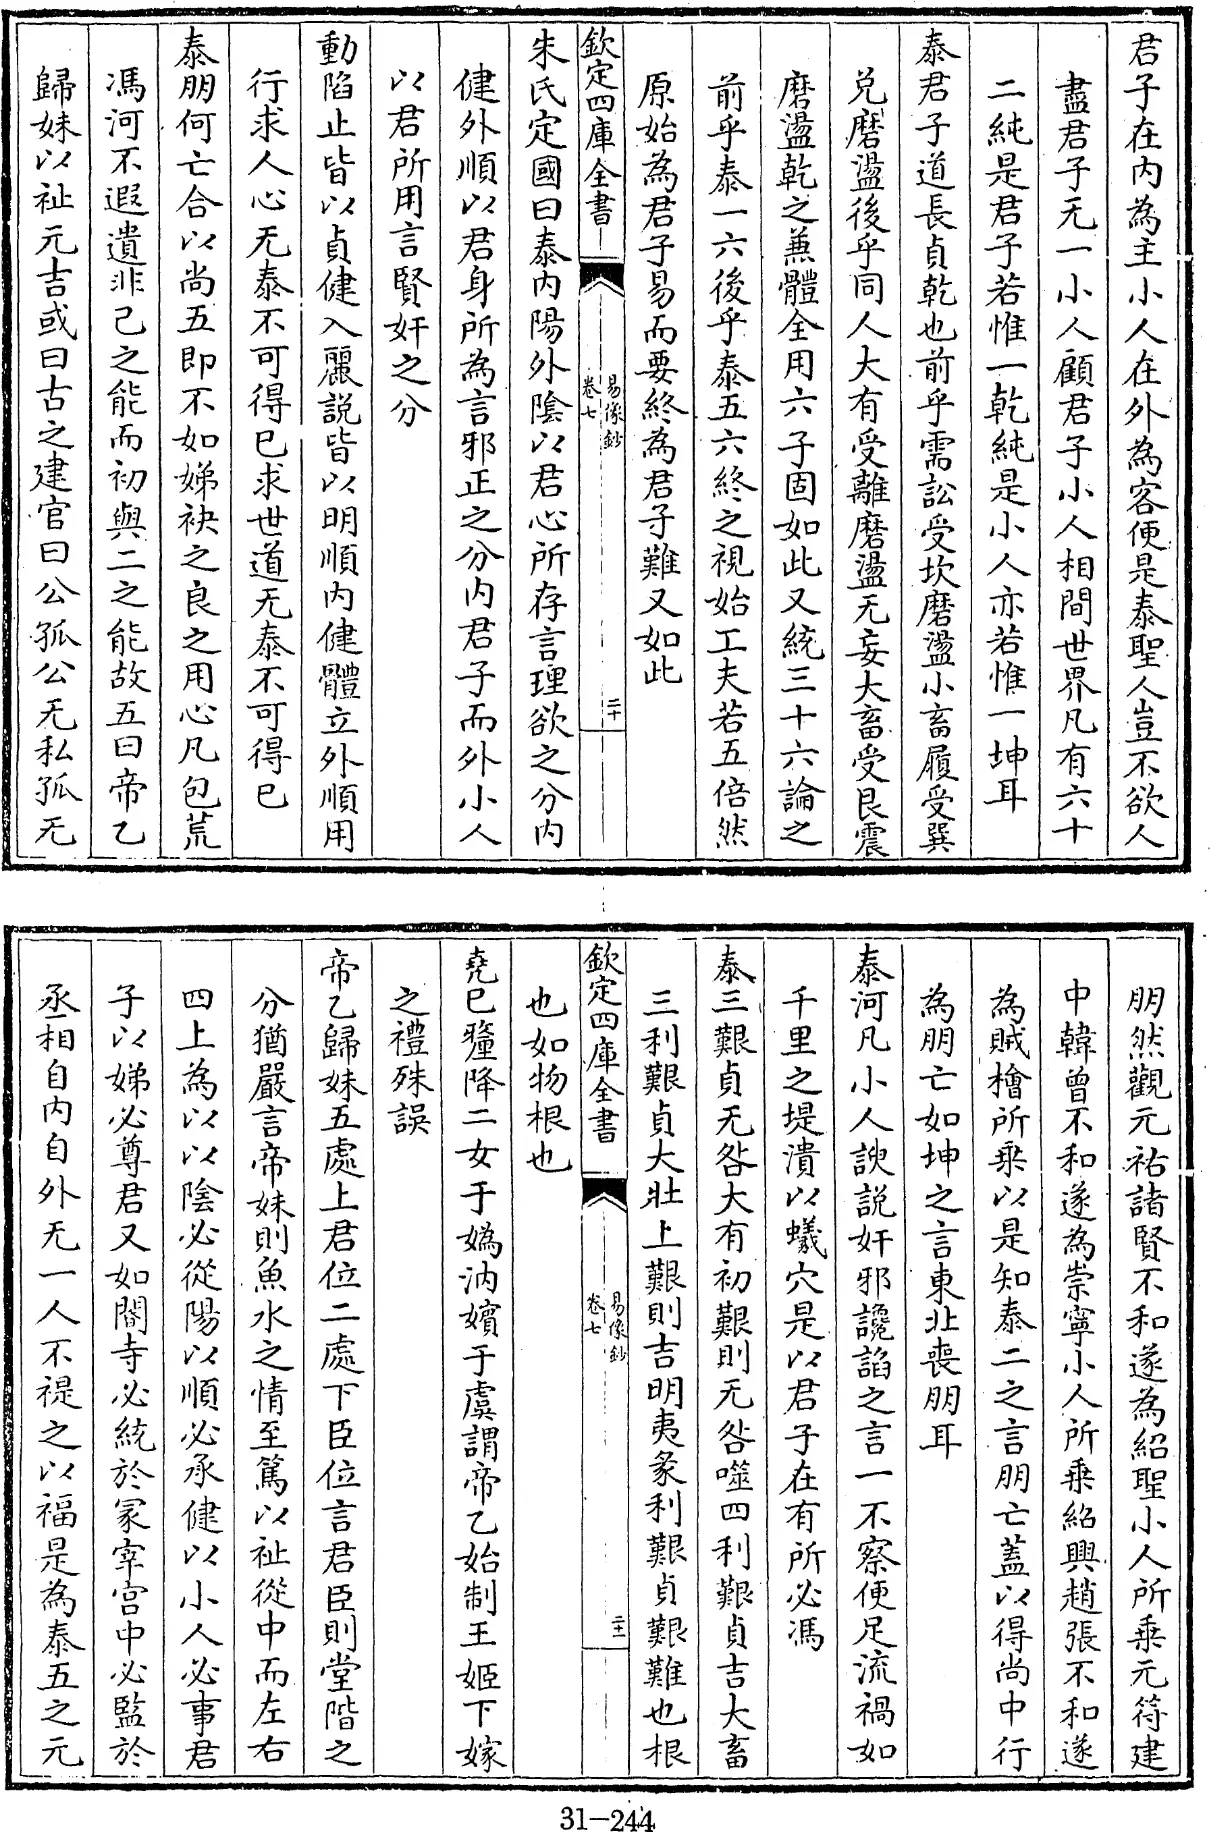 君子在内為主小人在外為客便是泰聖人豈不欲人
盡君子无一小人顧君子小人相間世界凡有六十
二純是君子若惟一乾純是小人亦若惟一坤耳
泰君子道長貞乾也前乎需訟受坎磨盪小畜履受巽
兑磨盪後乎同人大有受離磨盪无妄大畜受艮震
磨盪乾之兼體全用六子固如此又統三十六論之
前乎泰一六後乎泰五六終之視始工夫若五倍然
原始為君子易而要終為君子難又如此
欽定四庫全書
易像鈔
卷七
二十
朱氏定國曰泰内陽外陰以君心所存言理欲之分内
健外順以君身所為言邪正之分内君子而外小人
以君所用言賢奸之分
動陷止皆以貞健入麗説皆以明順内健體立外順用
行求人心无泰不可得已求世道无泰不可得已
泰朋何亡合以尚五即不如娣袂之良之用心凡包荒
馮河不遐遺非己之能而初與二之能故五曰帝乙
歸妹以祉元吉或曰古之建官曰公孤公无私孤无
朋然觀元祐諸賢不和遂為紹聖小人所乘元符建
中韓曾不和遂為崇寧小人所乘紹興趙張不和遂
為賊檜所乘以是知泰二之言朋亡蓋以得尚中行
為朋亡如坤之言東北喪朋耳
泰河凡小人諛説奸邪讒諂之言一不察便足流禍如
千里之堤潰以蟻穴是以君子在有所必馮
泰三艱貞无咎大有初艱則无咎噬四利艱貞吉大畜
三利艱貞大壯上艱則吉明夷彖利艱貞艱難也根
欽定四庫全書
易像鈔
卷七
二十一
也如物根也
堯已釐降二女于嬀汭嬪于虞謂帝乙始制王姬下嫁
之禮殊誤
帝乙歸妹五處上君位二處下臣位言君臣則堂階之
分猶嚴言帝妹則魚水之情至篤以祉從中而左右
四上為以以陰必從陽以順必承健以小人必事君
子以娣必尊君又如閽寺必統於冢宰宫中必監於
丞相自内自外无一人不禔之以福是為泰五之元
31-244